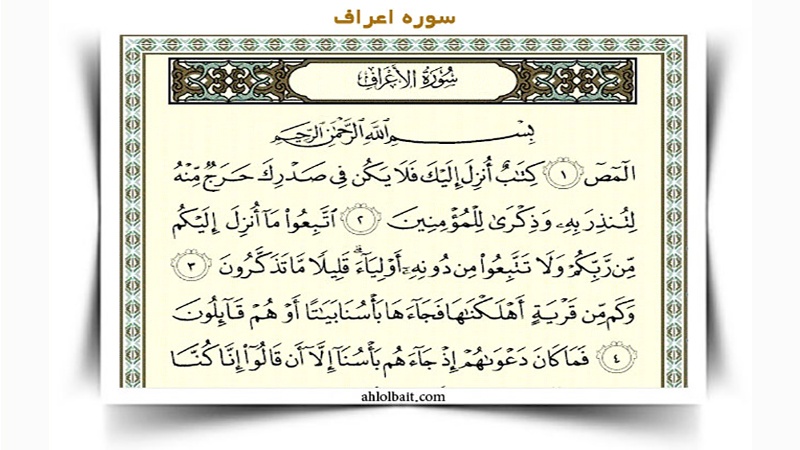 سوره اعراف
سُورَةُ الأَعْرَافِ
بِسْمِ اللَّهِ الرَّحْمَٰنِ الرَّحِيمِ
الٓمٓصٓ ١ كِتَٰبٌ أُنزِلَ إِلَيْكَ فَلَا يَكُن فِى صَدْرِكَ حَرَجٌ مِّنْهُ
لِتُنذِرَ بِهِۦ وَذِكْرَىٰ لِلْمُؤْمِنِينَ ٢ ٱتَّبِعُوا۟ مَآ أُنزِلَ إِلَيْكُم
مِّن رَّبِّكُمْ وَلَا تَتَّبِعُوا۟ مِن دُونِهِۦٓ أَوْلِيَآءَ ۗ قَلِيلًا مَّا تَذَكَّرُونَ ٣
وَكَم مِّن قَرْيَةٍ أَهْلَكْنَٰهَا فَجَآءَهَا بَأْسُنَا بَيَٰتًا أَوْ هُمْ قَآئِلُونَ
٤ فَمَا كَانَ دَعْوَىٰهُمْ إِذْ جَآءَهُم بَأْسُنَآ إِلَّآ أَن قَالُوٓا۟ إِنَّا كُنَّا
ahlolbait.com